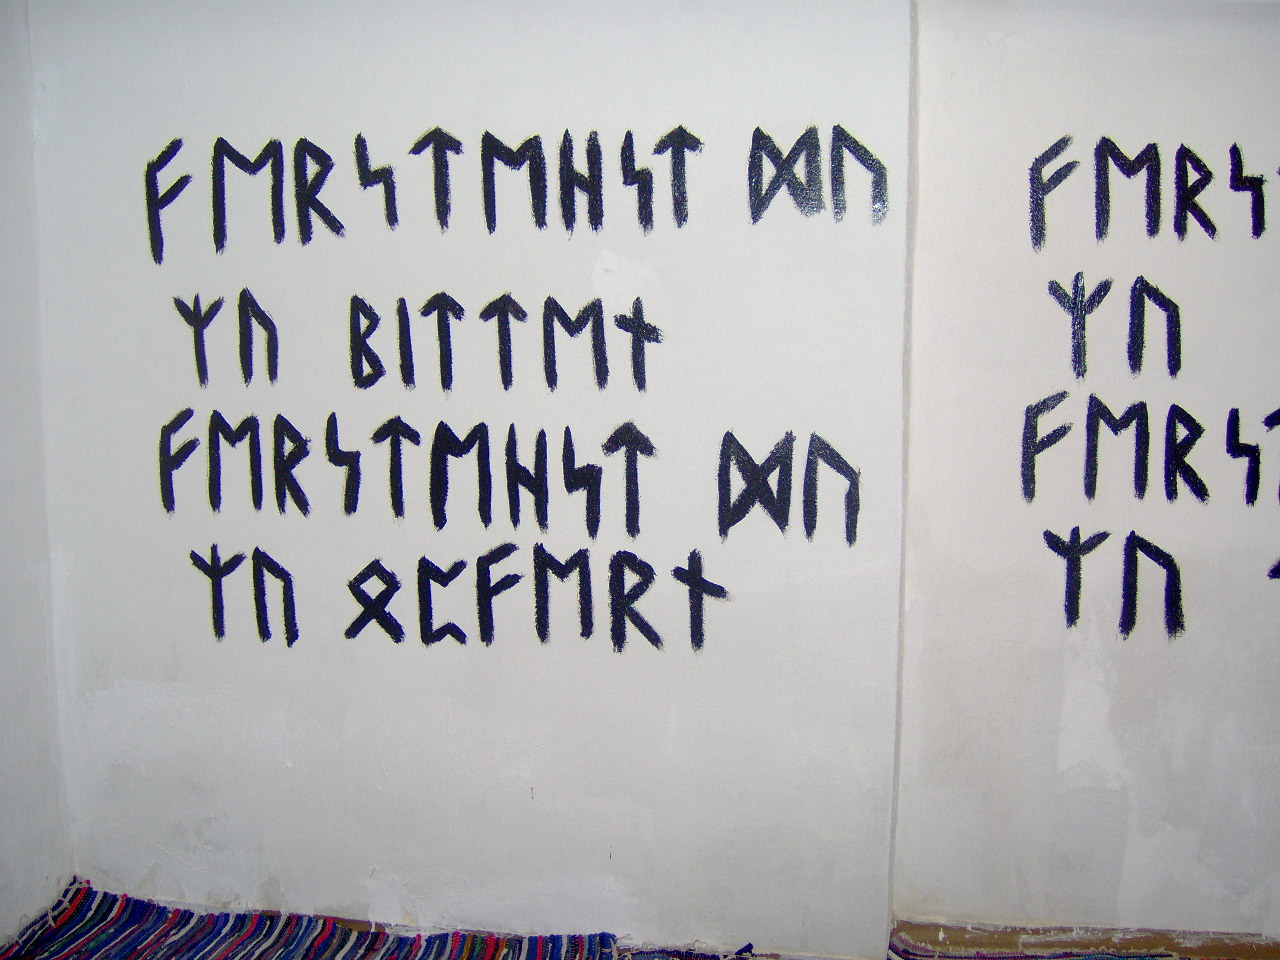 ᚠᛖᚱᛋᛏᛖᚺᛋᛏ ᛞᚢ
ᛉᚢ ᛒᛁᛏᛏᛖᚾ
ᚠᛖᚱᛋᛏᛖᚺᛋᛏ ᛞᚢ
ᛉᚢ ᛟᛈᚠᛖᚱᚾ
ᚠᛖᚱᛋ
ᛉᚢ
ᚠᛖᚱᛋ
ᛉᚢ